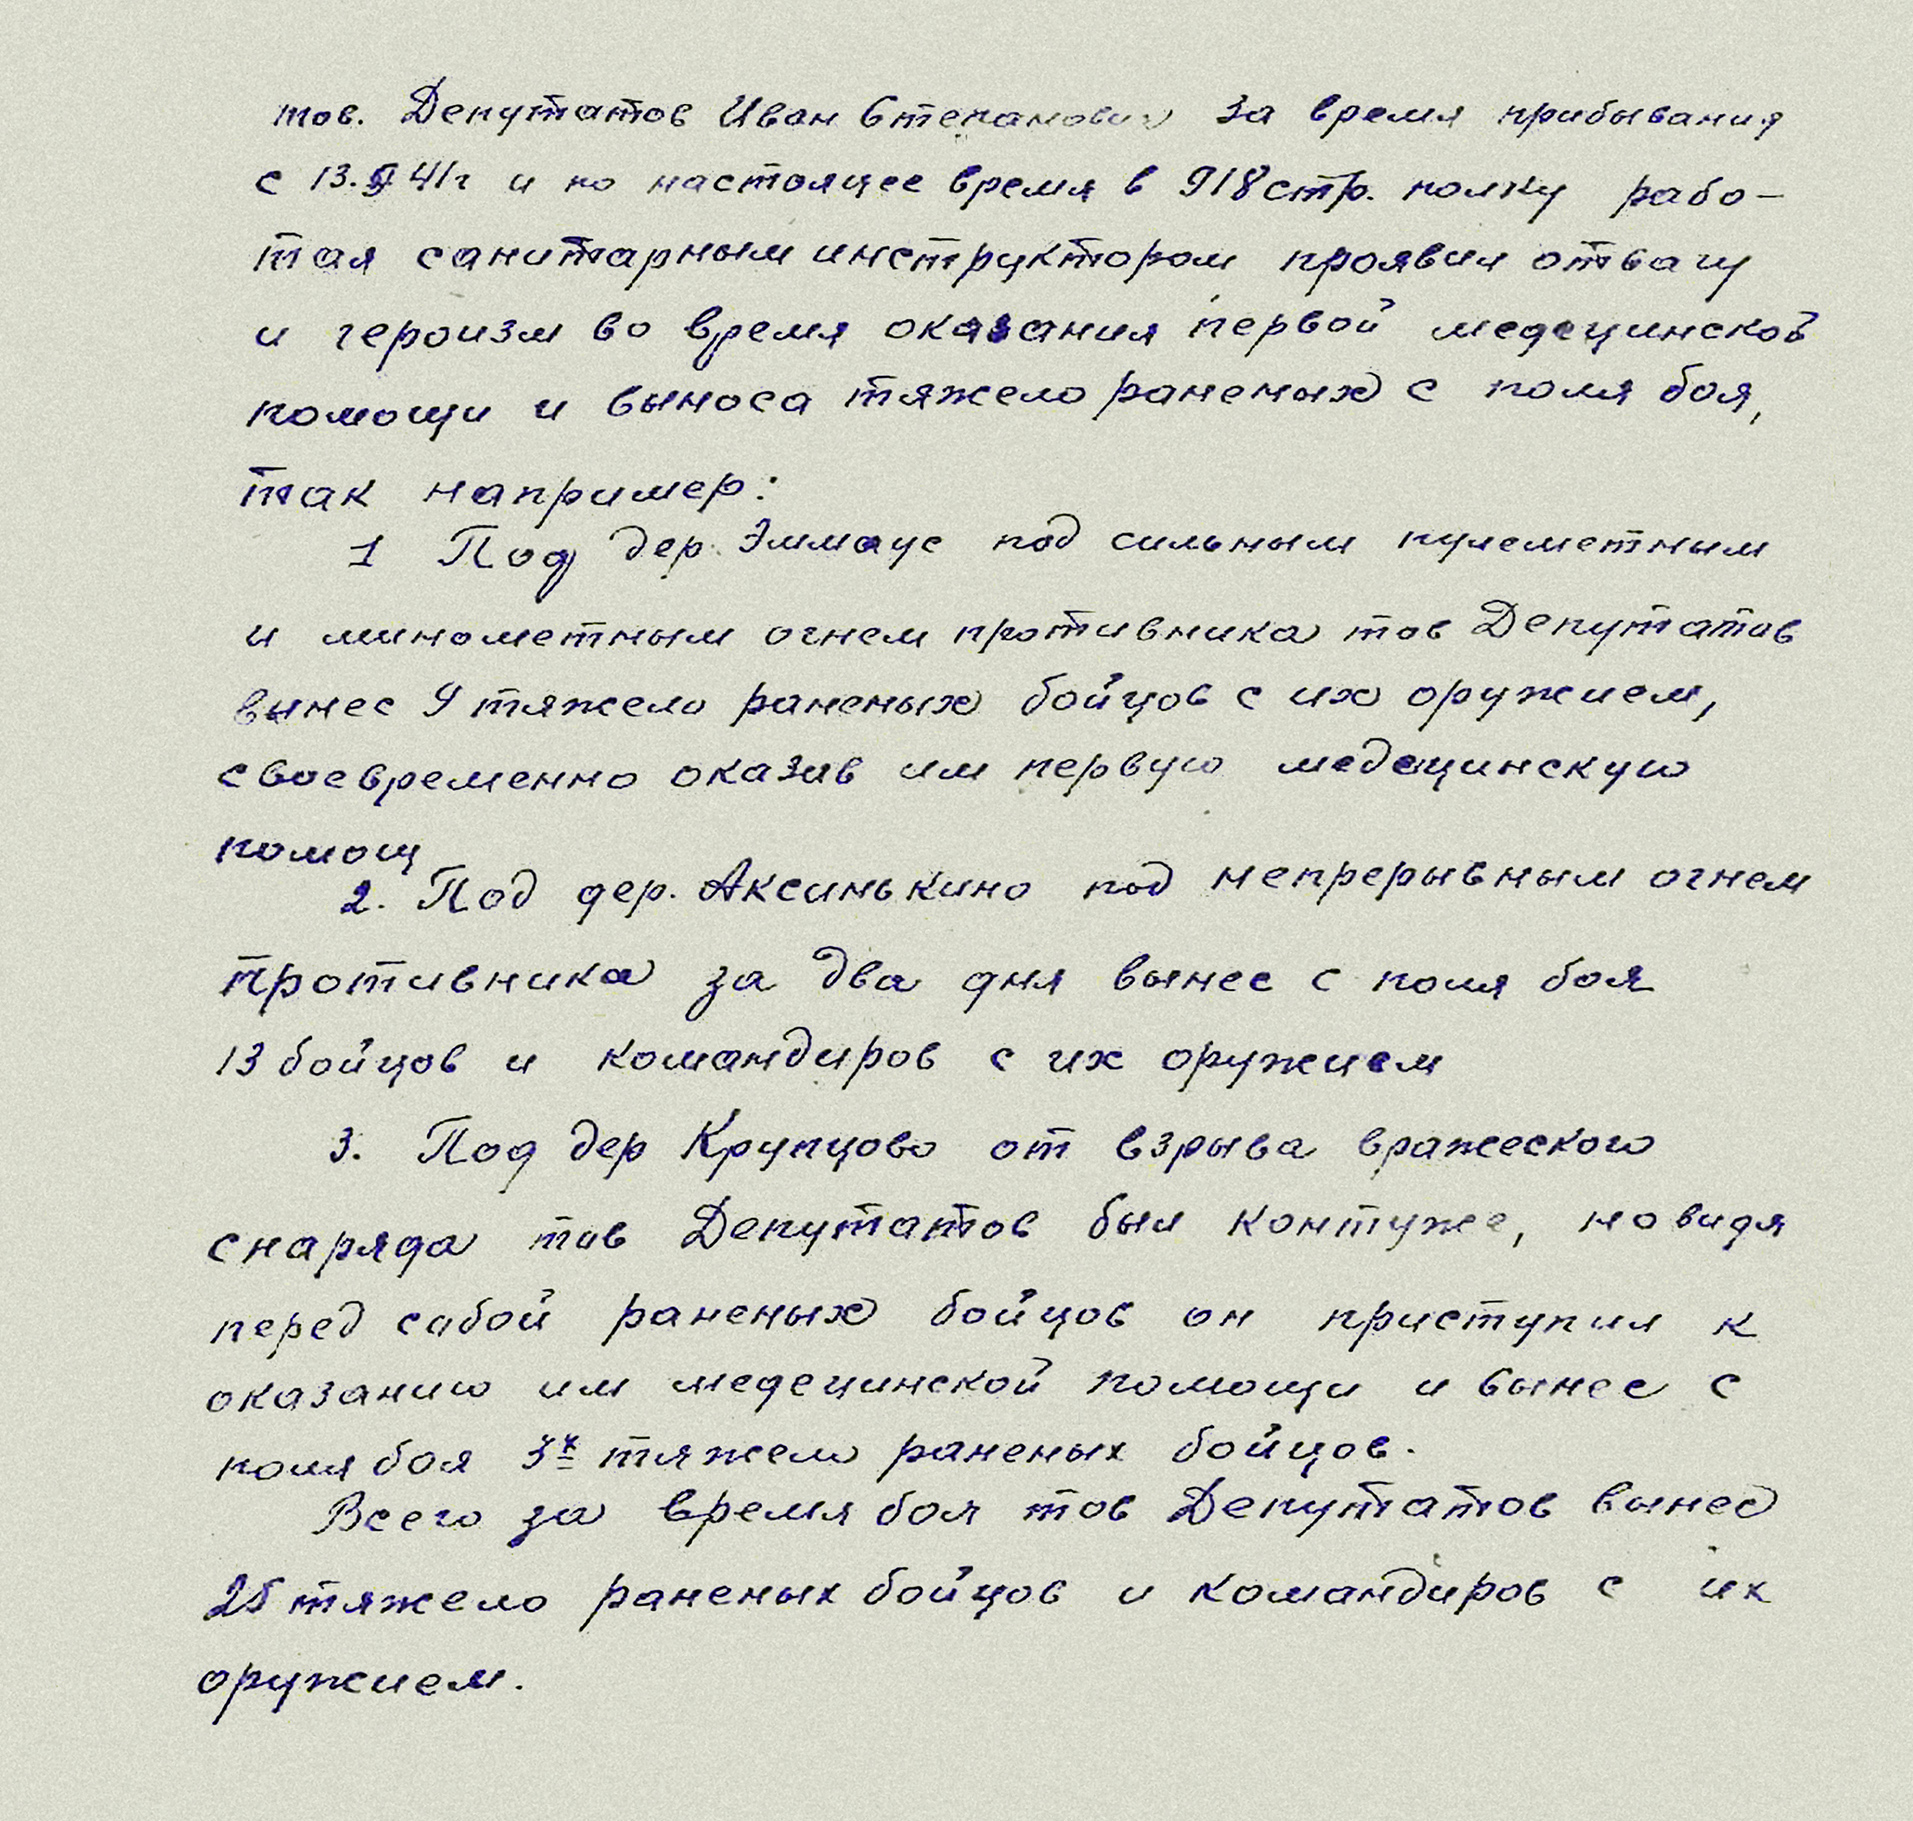 тов. Депутатов Иван Степанович за время прибывания
с 13. 41г и по настоящее время в 918 стр. полку рабо-
тая санитарным инструктором проявил отвагу
и героизм во время оказания первой медецинской
помощи и выноса тяжело раненых с поля боя,
так например:
1 Под дер. Эммаус под сильным пулеметным
и минометным огнем противника тов Депутатов
вынес 9 тяжело раненых бойцов с их оружием,
своевременно оказав им первую медецинскую
помощ
2. Под дер. Аксинькино под непрерывным огнем
противника за два дня вынес с поля боя
13 бойцов и командиров с их оружием
3. Под дер Крупцово от взрыва вражеского
снаряда тов Депутатов был контуже, но видя
перед собой раненых бойцов он приступил к
оказанию им медецинской помощи и вынес с
поля боя 3х тяжело раненых бойцов.
Всего за время боя тов Депутатов вынес
25 тяжело раненых бойцов и командиров с их
оружием.